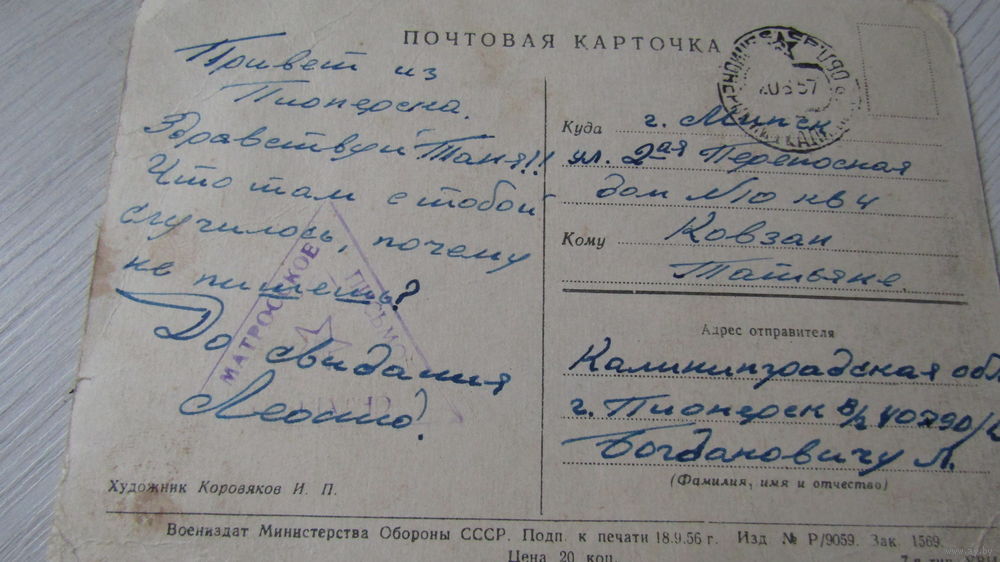 ПОЧТОВАЯ КАРТОЧКА
Привет из
Пионерска.
Здравствуй Таня!!
Что там с тобой
случилось, почему
не пишешь?
До свидания
МАТРОССКОЕ
ПИСЬМО
Куда г. Минск
ул. 2ая Переносная
дом №10 кв 4
Кому Ковзан
Татьяне.
Адрес отправителя
Калининградская обл
г. Пионерск в/ч 40790/
Богдановичу Л.
(Фамилия, имя и отчество)
Художник Коровяков И. П.
Воениздат Министерства Обороны СССР. Подп. к печати 18.9.56 г. Изд № Р/9059. Зак. 1569.
Цена 20 коп.